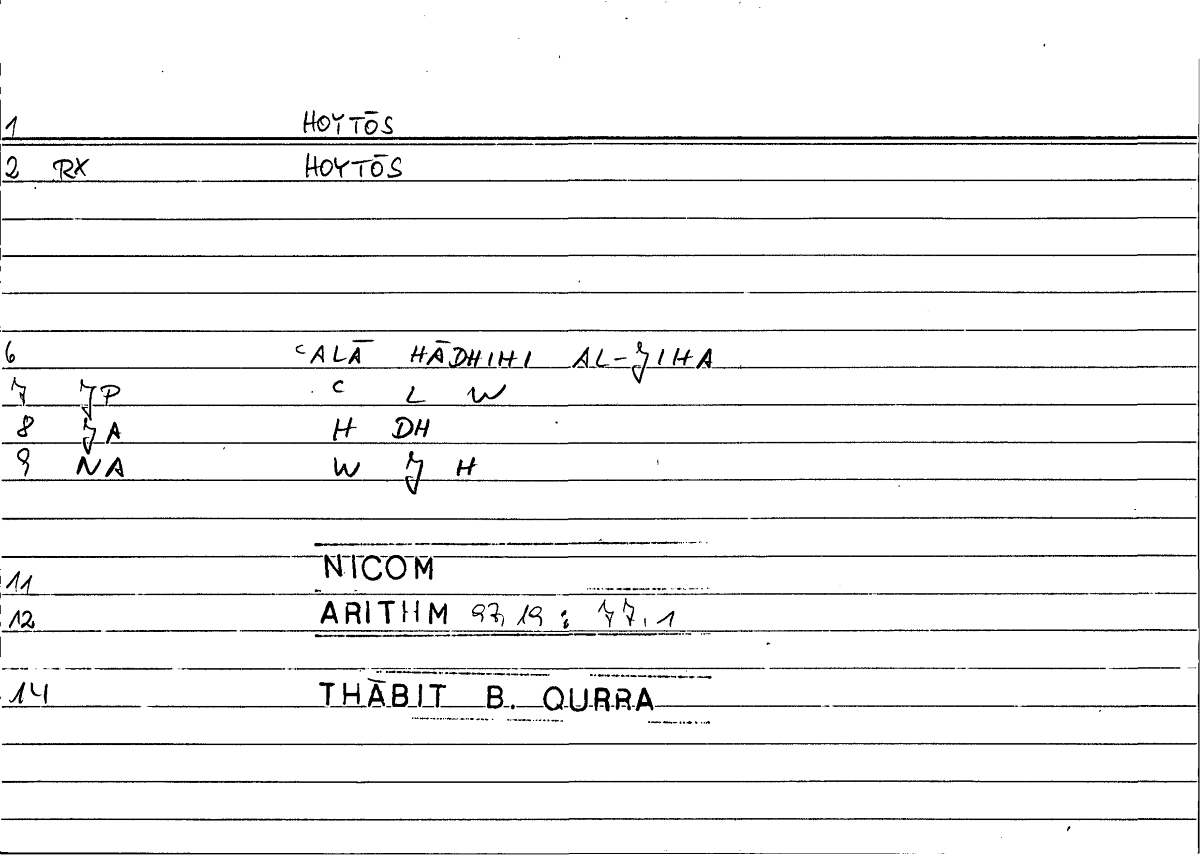 1 HOYTŌS
2 RX HOYTŌS
6 ʿALĀ HĀDHIHI AL-JIHA
7 JP ʿ L W
8 JA H DH
9 NA W J H
11 NICOM
12 ARITHM 97,19 : 77,1
14 THĀBIT B. QURRA